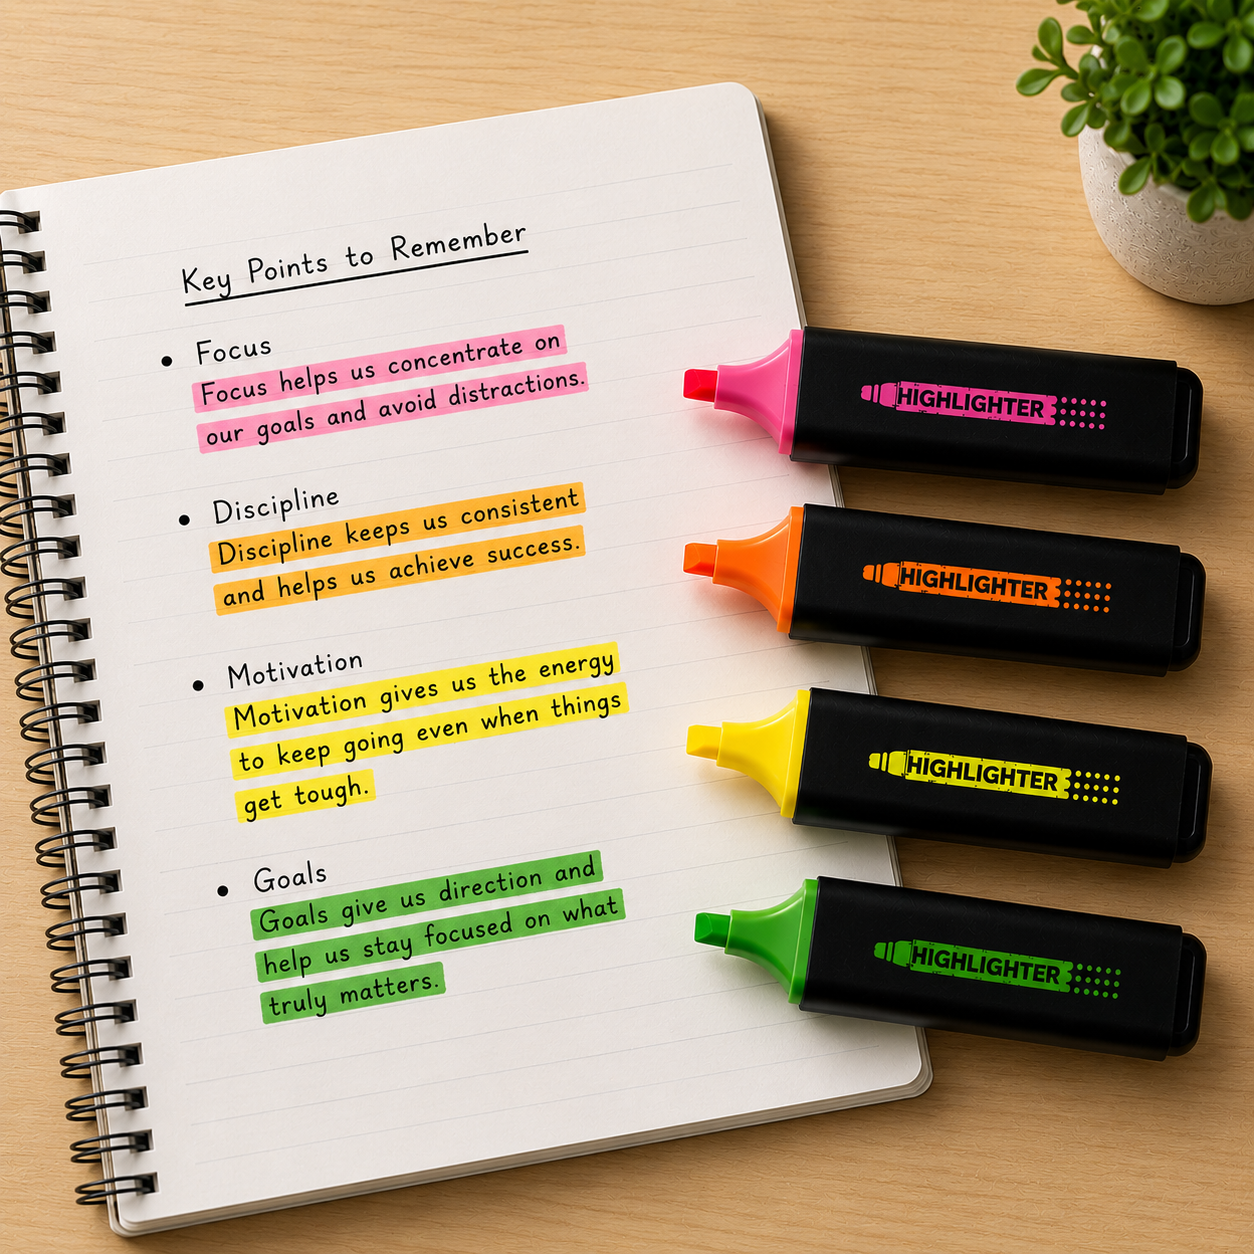 Key Points to Remember
• Focus
Focus helps us concentrate on
our goals and avoid distractions.
• Discipline
Discipline keeps us consistent
and helps us achieve success.
• Motivation
Motivation gives us the energy
to keep going even when things
get tough.
• Goals
Goals give us direction and
help us stay focused on what
truly matters.
HIGHLIGHTER
HIGHLIGHTER
HIGHLIGHTER
HIGHLIGHTER